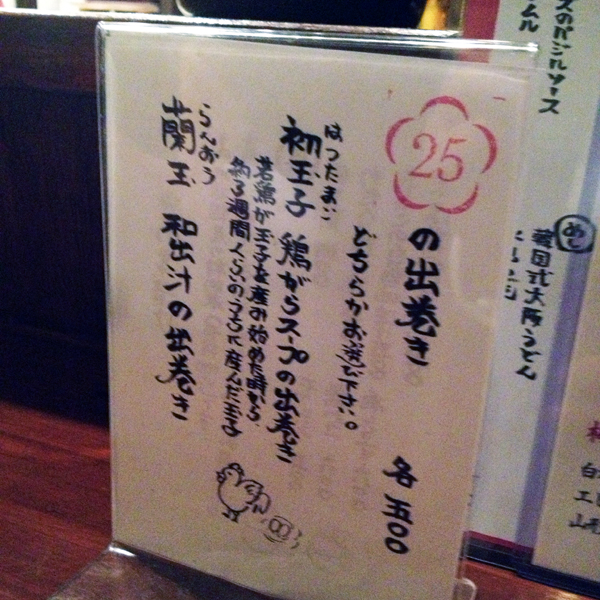 25
の出巻き 各五〇〇
どちらかお選び下さい。
はつたまご
初玉子 鶏がらスープの出巻き
若鶏が玉子を産み始めた時から
約3週間くらいのうちに産んだ玉子
らんおう
蘭玉 和出汁の出巻き
スのバジルソース
ムル
めし
韓国式大阪うどん